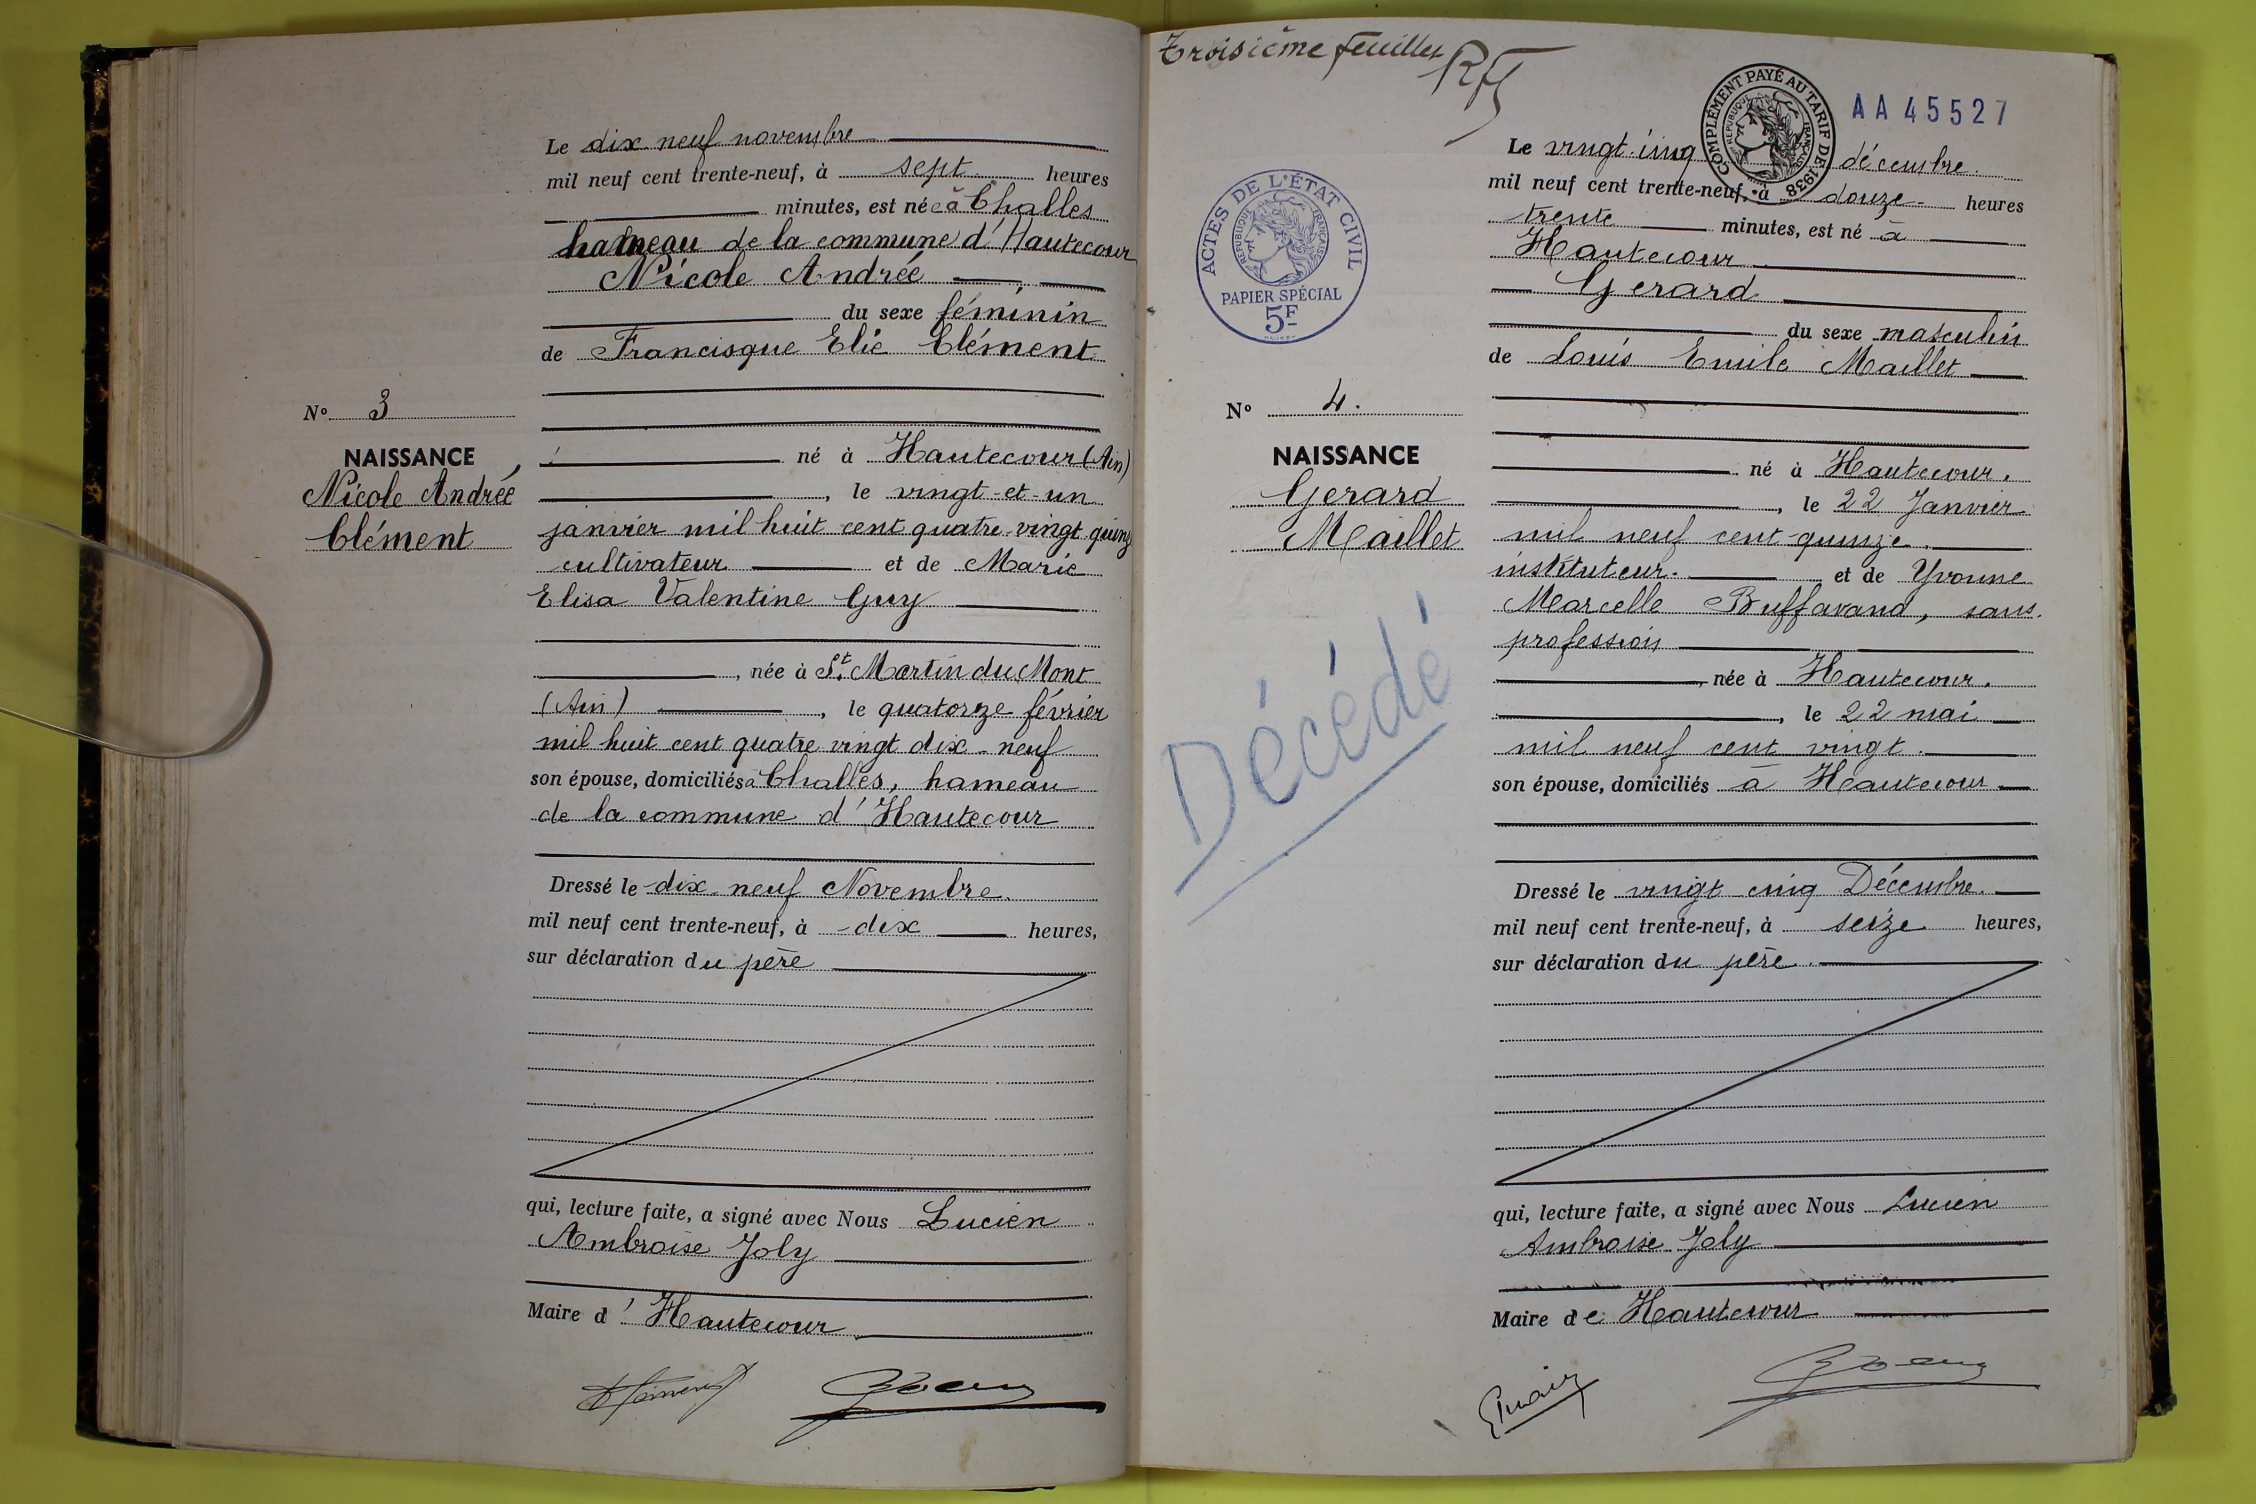 Le dix neuf novembre
mil neuf cent trente-neuf, à sept heures
minutes, est née à Challes
hameau de la commune d'Hautecour
Nicole Andrée
du sexe féminin
de Francisque Elie Clément
N° 3
NAISSANCE
Nicole Andrée
Clément
né à Hautecour (Ain)
, le vingt-et-un
janvier mil huit cent quatre-vingt quinze
cultivateur et de Marie
Elisa Valentine Guy
, née à St Martin du Mont
(Ain) , le quatorze février
mil huit cent quatre vingt dix-neuf
son épouse, domiciliés à Challes, hameau
de la commune d'Hautecour
Dressé le dix-neuf Novembre
mil neuf cent trente-neuf, à dix heures,
sur déclaration du père
qui, lecture faite, a signé avec Nous Lucien
Ambroise Joly
Maire d'Hautecour
Troisième feuillet
COMPLÉMENT PAYÉ AU TARIF DE 1938
RÉPUBLIQUE FRANÇAISE
AA 45527
ACTES DE L'ÉTAT CIVIL
RÉPUBLIQUE FRANÇAISE
PAPIER SPÉCIAL
5F
Le vingt-cinq décembre.
mil neuf cent trente-neuf, à douze heures
trente minutes, est né à
Hautecour
Gerard
du sexe masculin
de Louis Emile Maillet
N° 4.
NAISSANCE
Gerard
Maillet
Décédé
né à Hautecour.
, le 22 Janvier
mil neuf cent quinze
instituteur. et de Yvonne
Marcelle Buffavand, sans
profession
, née à Hautecour.
, le 22 mai
mil neuf cent vingt.
son épouse, domiciliés à Hautecour
Dressé le vingt cinq Décembre.
mil neuf cent trente-neuf, à seize heures,
sur déclaration du père.
qui, lecture faite, a signé avec Nous Lucien
Ambroise Joly
Maire de Hautecour